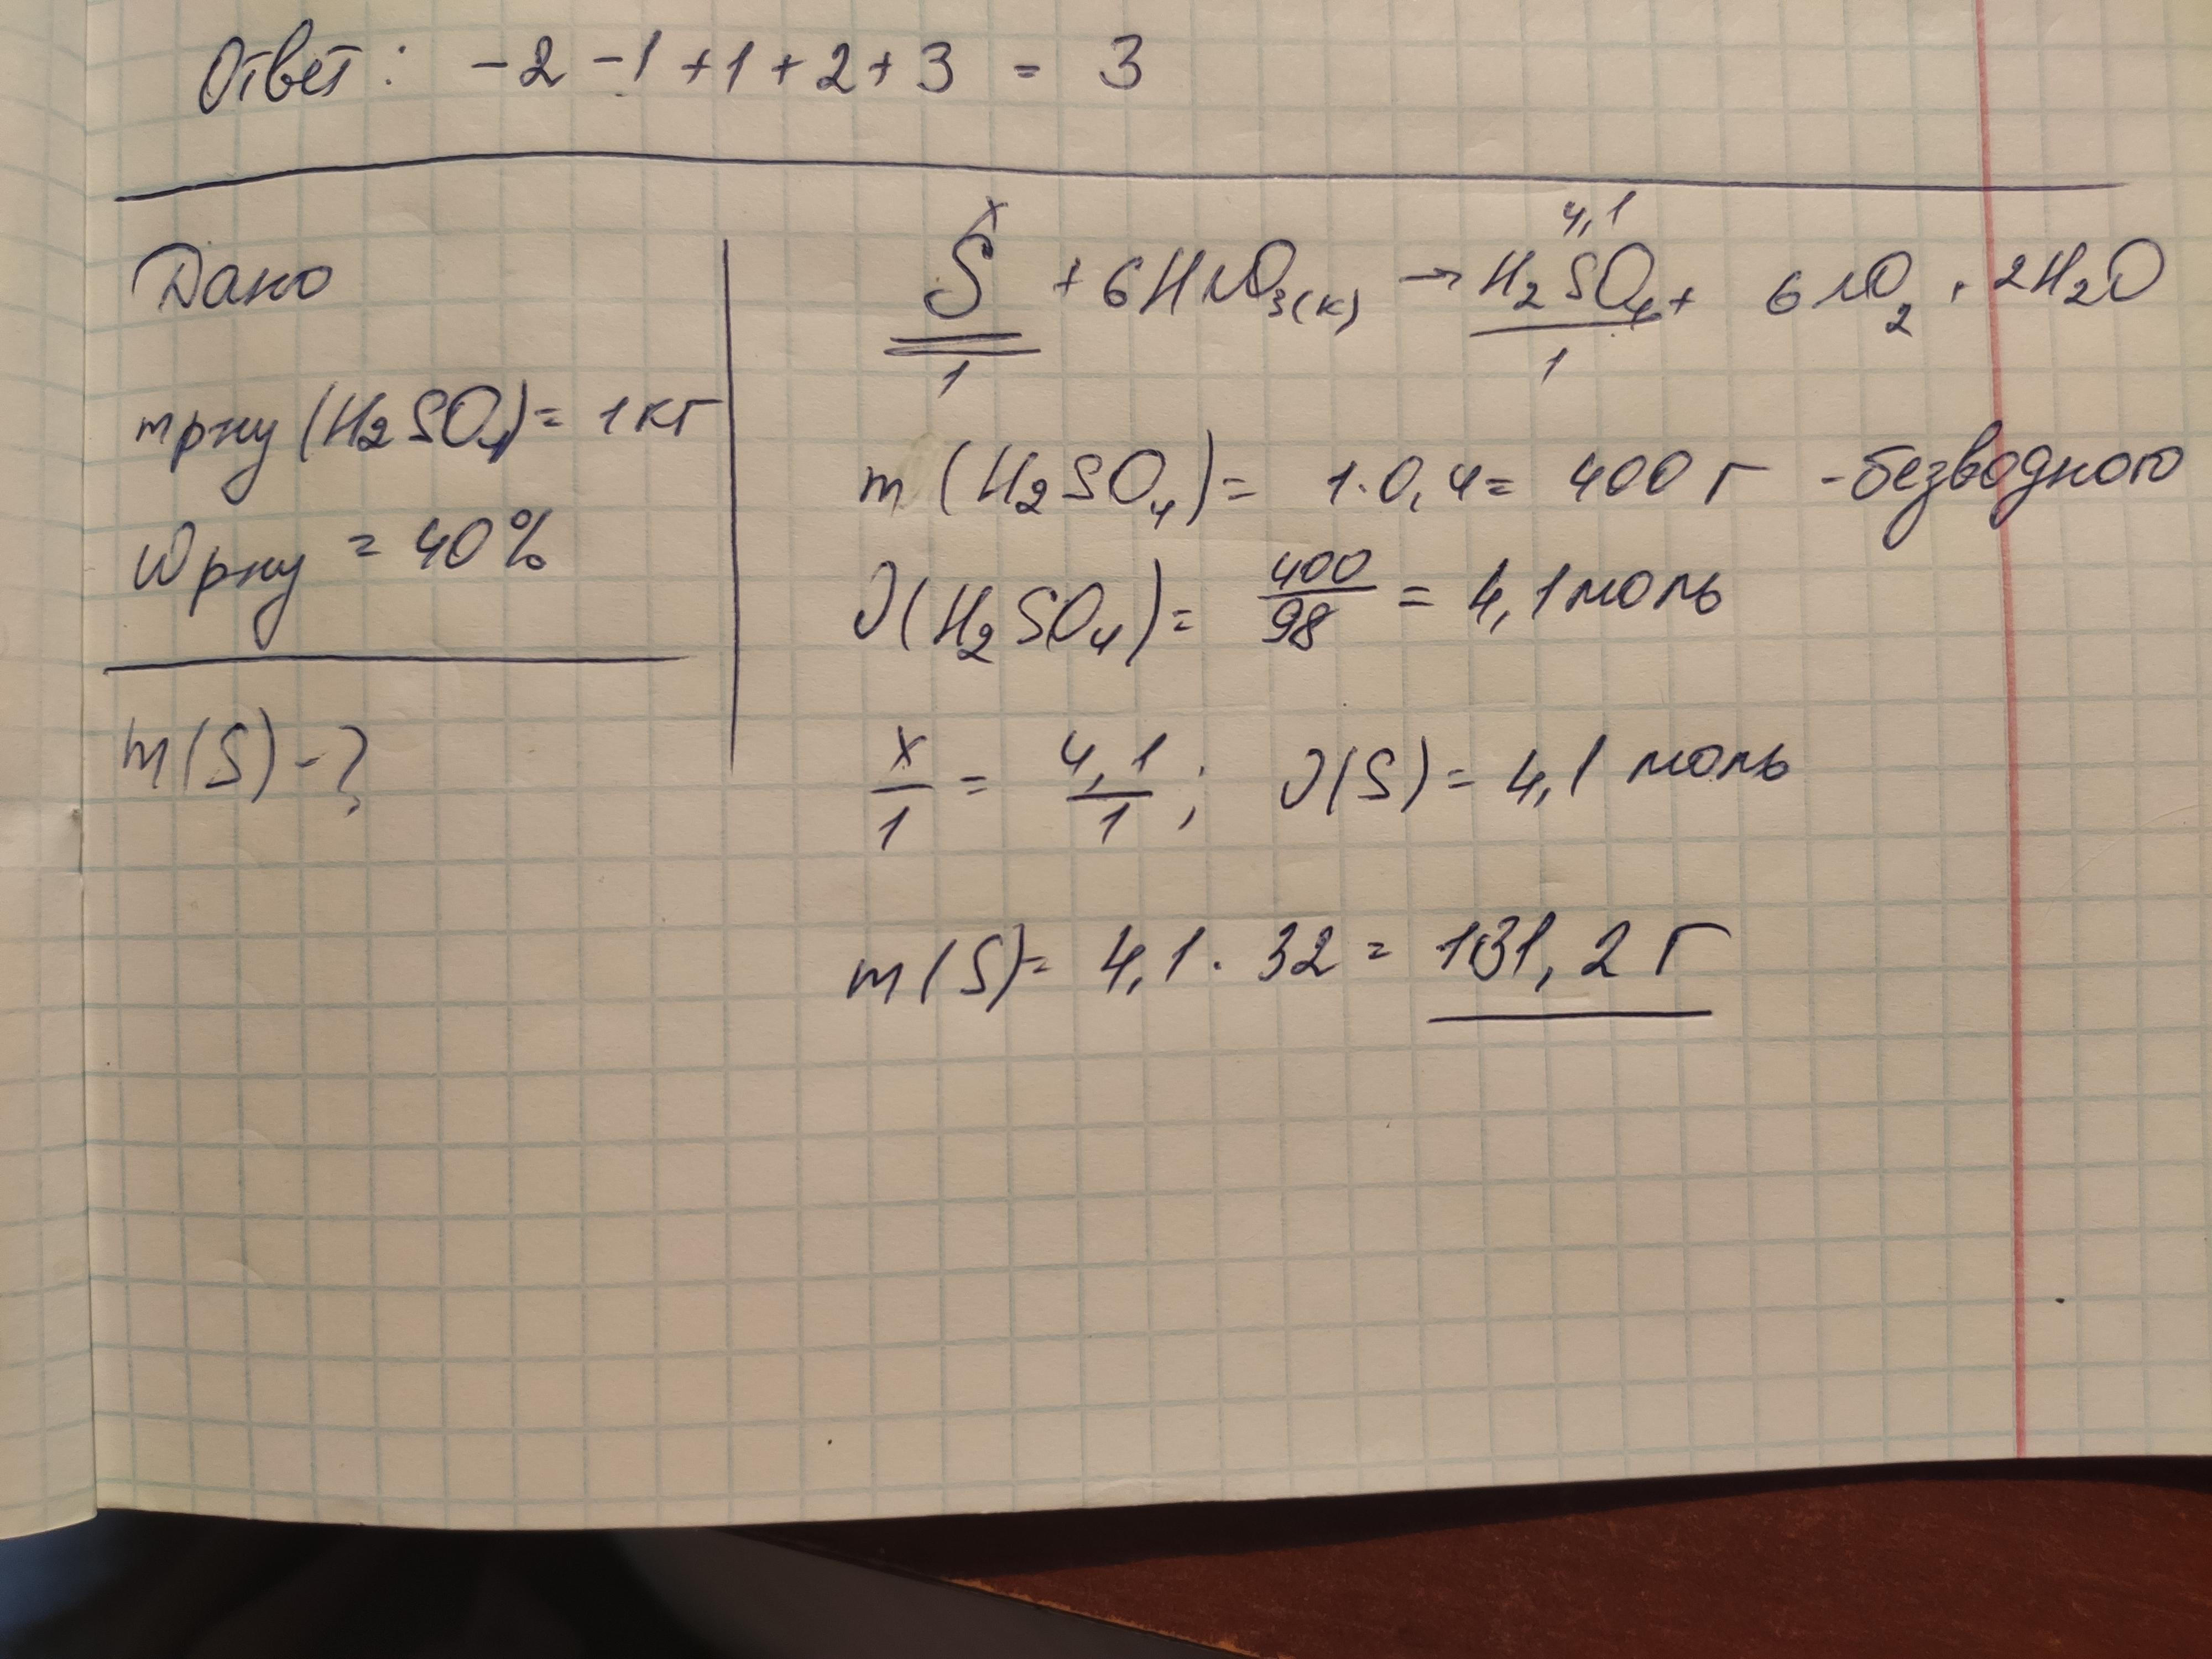 Ответ: -2 -1 +1 +2 +3 = 3
Дано
mрну (H₂SO₄) = 1 кг
Wрну = 40%
m(S) - ?
x 4,1
S + 6HNO₃(к) → H₂SO₄ + 6NO₂ + 2H₂O
1 1
m (H₂SO₄) = 1·0,4 = 400 г - безводного
ν(H₂SO₄) = 400/98 = 4,1 моль
x/1 = 4,1/1 ; ν(S) = 4,1 моль
m(S) = 4,1 · 32 = 131,2 г